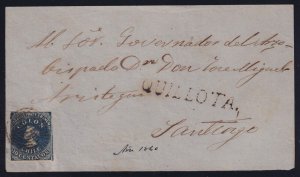 Al Sor. Governador del Arzo-
bispado Dn Don Jose Miguel
Aristegui
QUILLOTA,
Santiago
COLON
CHILE
Nov 1860